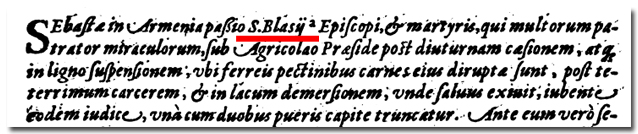 SEbastæ in Armenia passio S. Blasij ª Episcopi, & martyris, qui multorum pa-
trator miraculorum, sub Agricolao Præside post diuturnam cæsionem, atq;
in ligno suspensionem, vbi ferreis pectinibus carnes eius diruptæ sunt, post te-
terrimum carcerem, & in lacum demersionem, vnde saluus exiuit, iubente
eodem iudice, vnà cum duobus pueris capite truncatur. Ante eum verò se-